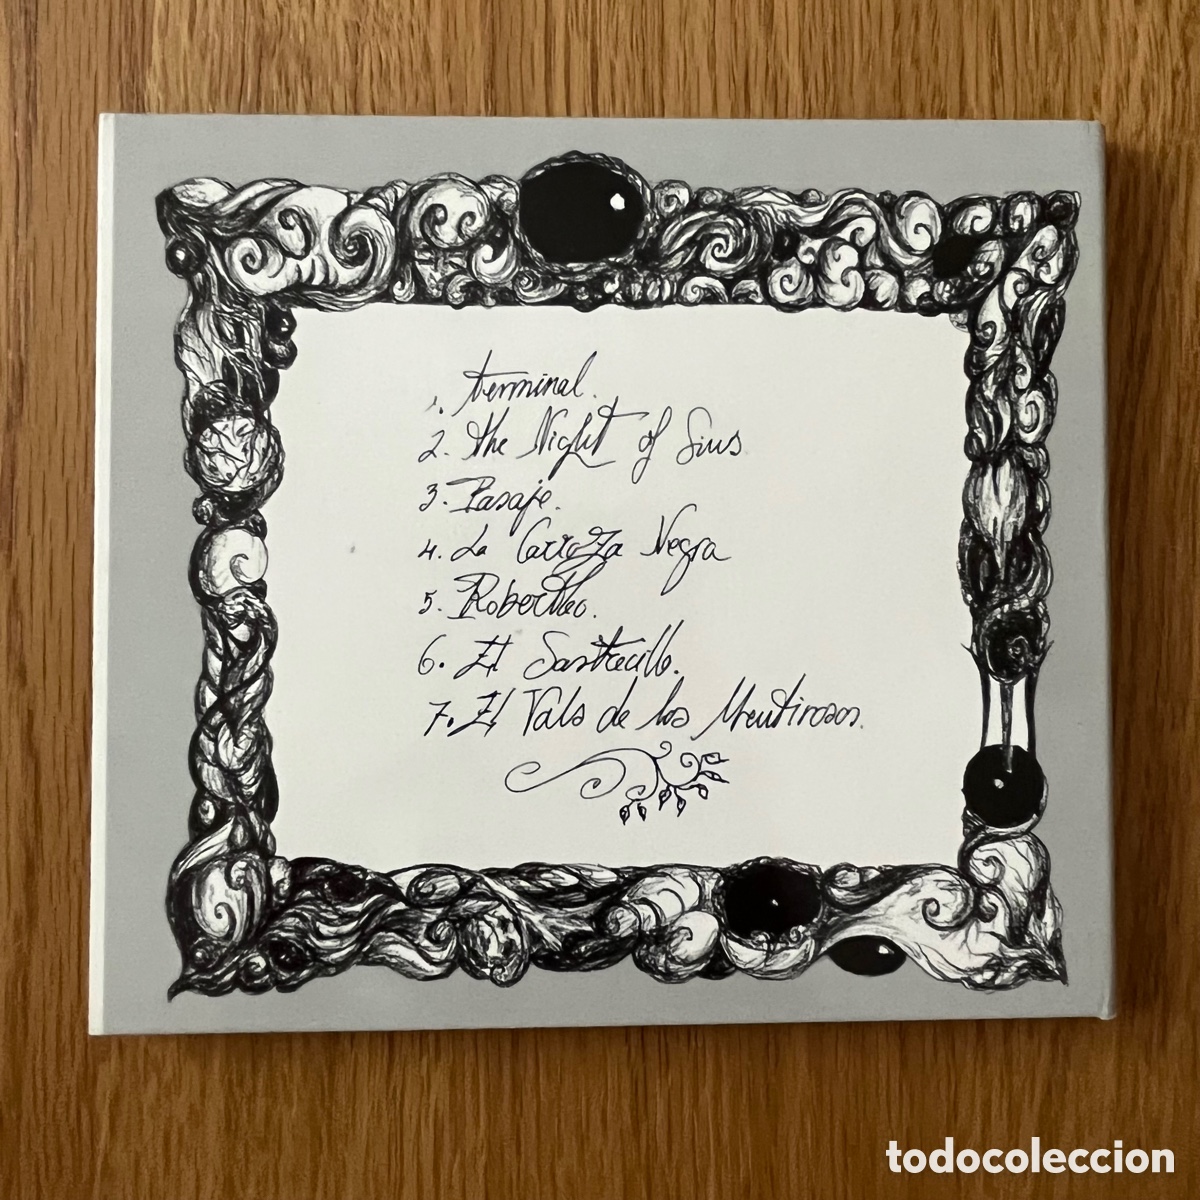 1. terminal.
2. the Night of Sius
3. Pasaje.
4. La Carroza Negra
5. Robertheo.
6. El Sastrecillo.
7. El Vals de los Mentirosos.
todocoleccion